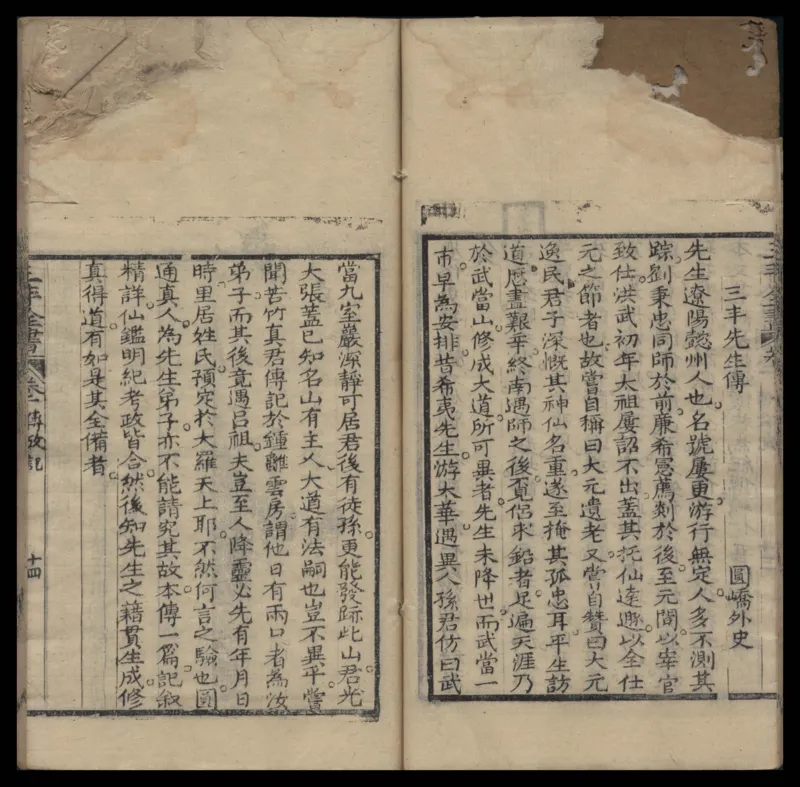 三丰先生傳
圓嶠外史
先生遼陽懿州人也名號屢更游行無定人多不測其
踪劉秉忠同師於前廉希憲薦剡於後至元閒以宰官
致仕洪武初年太祖屢詔不出蓋其托仙遠遯以全仕
元之節者也故嘗自稱曰大元遺老又嘗自贊曰大元
逸民君子深慨其神仙名重遂至掩其孤忠耳平生訪
道厯盡艱辛終南遇師之後覔侶求鉛者足遍天涯乃
於武當山修成大道所可異者先生未降世而武當一
市早為安排昔希夷先生游太華遇異人孫君仿曰武
當九室巖深靜可居君後有徒孫更能發跡此山君光
大張蓋已知名山有主人大道有法嗣也豈不異乎嘗
聞苦竹真君傳記於鍾離雲房謂他日有兩口者為汝
弟子而其後竟遇呂祖夫豈至人降靈必先有年月日
時里居姓氏預定於大羅天上耶不然何言之驗也圓
通真人為先生弟子亦不能請究其故本傳一篇記叙
精詳仙鑑明紀考政皆合然後知先生之籍貫生成修
真得道有如是其全備者
三丰全書
卷一
傳攷記
十四